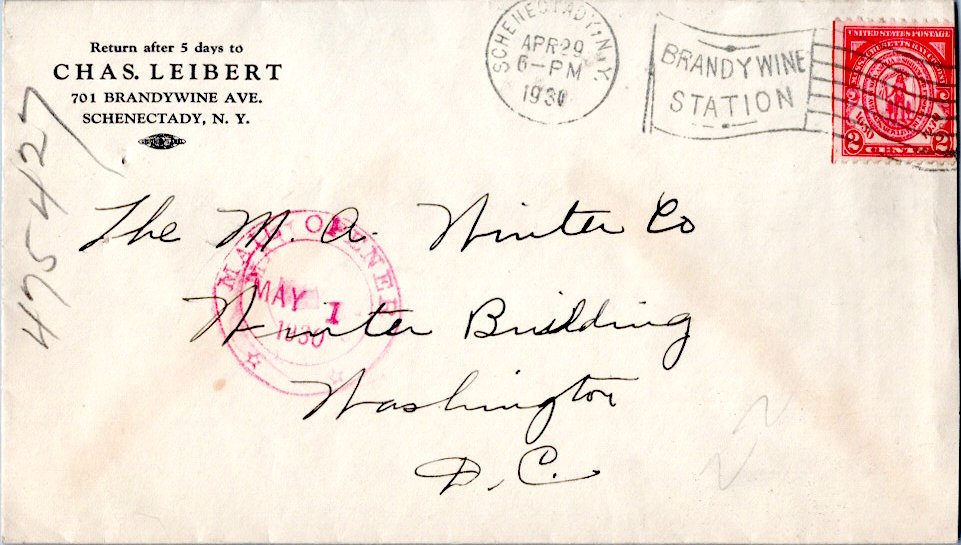 Return after 5 days to
CHAS. LEIBERT
701 BRANDYWINE AVE.
SCHENECTADY, N. Y.
SCHENECTADY, N.Y.
APR 29
6-PM
1930
BRANDYWINE
STATION
UNITED STATES POSTAGE
MASSACHUSETTS BAY COLONY
1630
2 CENTS 2
475427
The M. A. Winter Co
Winter Building
Washington
D. C.
MAIL OPENED
MAY 1
1930